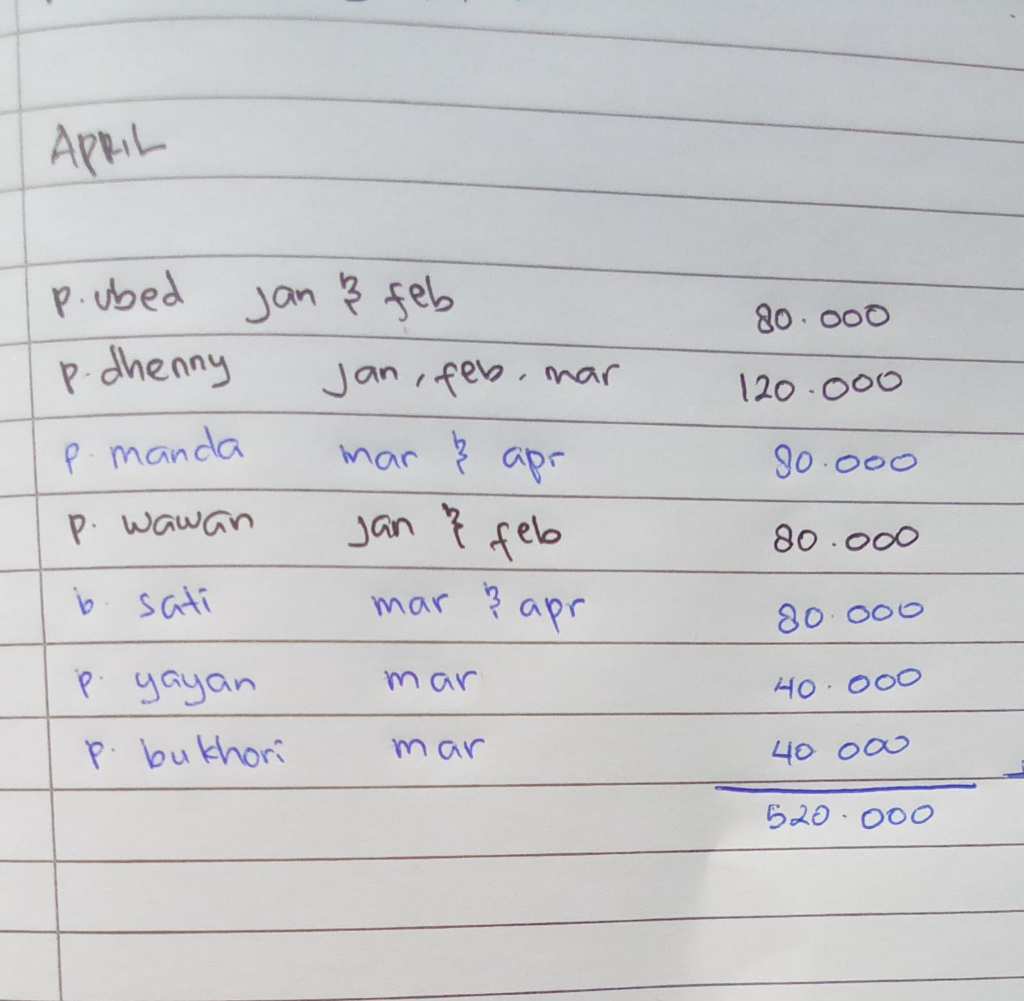 APRIL
p. ubed jan & feb 80.000
p. dhenny jan, feb, mar 120.000
p. manda mar & apr 80.000
p. wawan jan & feb 80.000
b. sati mar & apr 80.000
p. yayan mar 40.000
p. bukhori mar 40 000
520.000